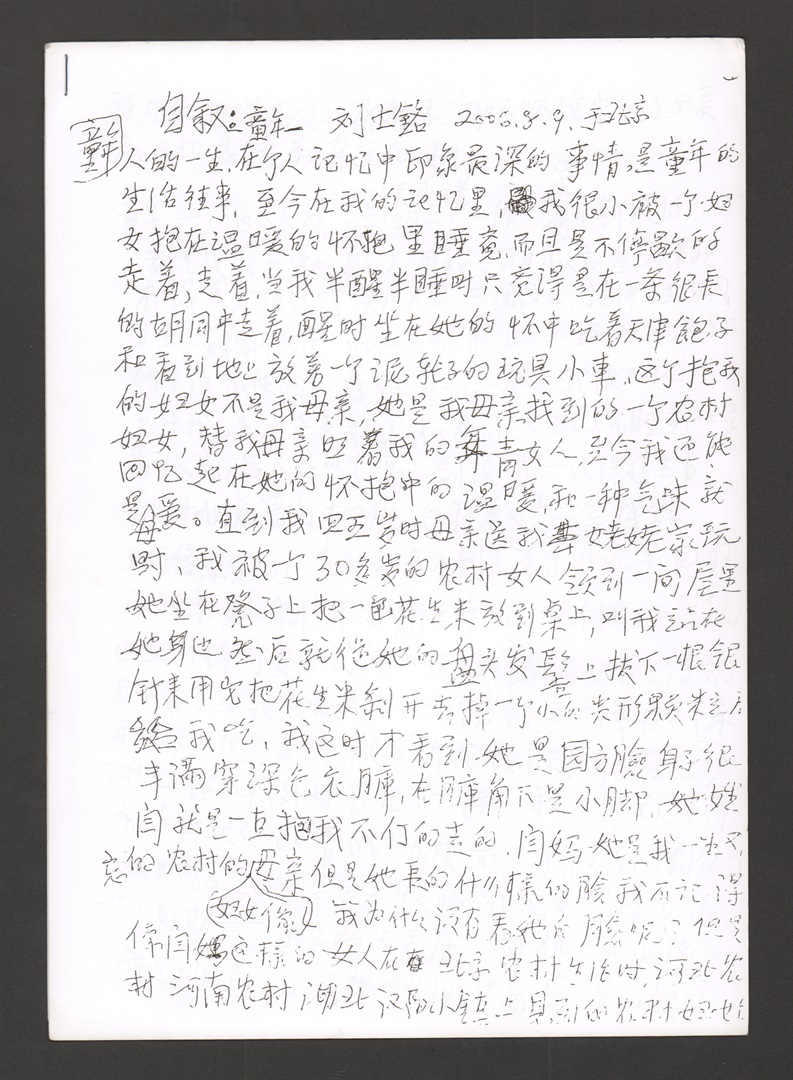 童年
自叙:童年 刘士铭 2006.8.9.于北京
人的一生,在个人记忆中印象最深的事情,是童年的
生活往事,至今在我的记忆里,我很小被一个妇
女抱在温暖的怀抱里睡觉,而且是不停歇的
走着,走着,当我半醒半睡时只觉得是在一条很长
的胡同中走着,醒时坐在她的怀中吃着天津包子
和看到地上放着一个泥轮子的玩具小車,这个抱我
的妇女不是我母亲,她是我母亲找到的一个农村
妇女,替我母亲照着我的年青女人,至今我还能
回忆起在她的怀抱中的温暖,和一种气味就
是母爱。直到我四五岁时母亲送我去姥姥家玩
时、我被一个30多岁的农村女人领到一间屋里
她坐在凳子上把一包花生米放到桌上,叫我站在
她身边然后就從她的盘头发髻上拔下一根银
針来用它把花生米剥开去掉一个小的类形
给我吃,我这时才看到她是园方臉身子很
丰满穿深色衣庫,在庫角下是小脚,她姓
闫就是一直抱我不停的走的,闫妈她是我一生不
忘的农村的母亲但是她長的什么样的臉我不记得
(妇女像) 我为什么没有看她的臉呢?但是
像闫妈这样的女人在北京农村生活时,河北农
村河南农村湖北汉阳小鎮上見到的农村妇女